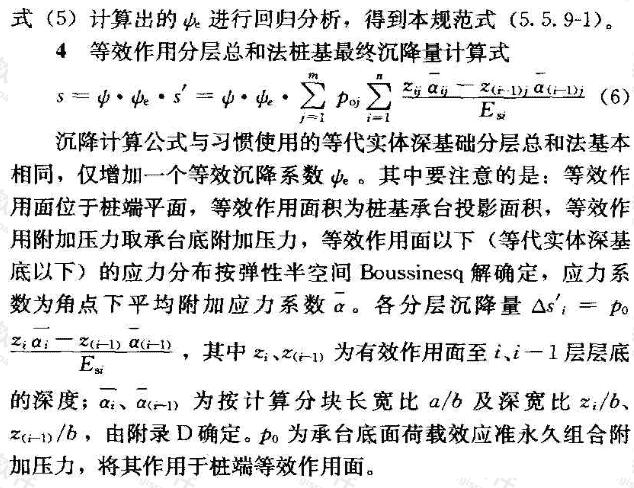 式（5）计算出的 ψe 进行回归分析，得到本规范式（5.5.9-1）。
4 等效作用分层总和法桩基最终沉降量计算式
s = ψ · ψe · s′ = ψ · ψe · ∑_{j=1}^{m} p0j ∑_{i=1}^{n} (zij ᾱij − z(i−1)j ᾱ(i−1)j) / Esi （6）
沉降计算公式与习惯使用的等代实体深基础分层总和法基本
相同，仅增加一个等效沉降系数 ψe 。其中要注意的是：等效作
用面位于桩端平面，等效作用面积为桩基承台投影面积，等效作
用附加压力取承台底附加压力，等效作用面以下（等代实体深基
底以下）的应力分布按弹性半空间 Boussinesq 解确定，应力系
数为角点下平均附加应力系数 ᾱ 。各分层沉降量 Δs′i = p0
(zi ᾱi − z(i−1) ᾱ(i−1)) / Esi ，其中 zi、z(i−1) 为有效作用面至 i、i−1 层层底
的深度；ᾱi、ᾱ(i−1) 为按计算分块长宽比 a/b 及深宽比 zi/b、
z(i−1)/b ，由附录 D 确定。p0 为承台底面荷载效应准永久组合附
加压力，将其作用于桩端等效作用面。